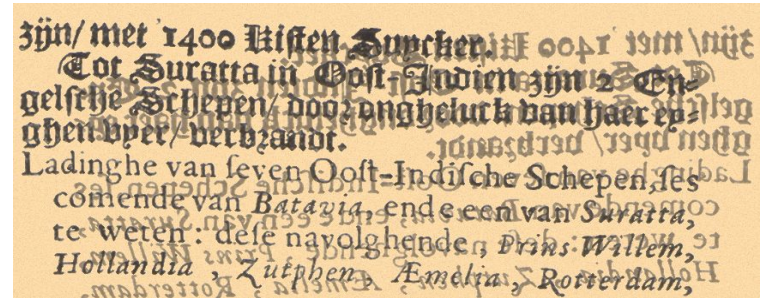 zijn/ met 1400 Kisten Suycker.
Tot Suratta in Oost-Indien zijn 2 En-
gelsche Schepen/ door ongheluck van haer ey-
ghen vyer/ verbrandt.
Ladinghe van seven Oost-Indische Schepen, ses
comende van Batavia, ende een van Suratta,
te weten : dese navolghende , Prins Willem,
Hollandia , Zutphen , Æmelia , Rotterdam,